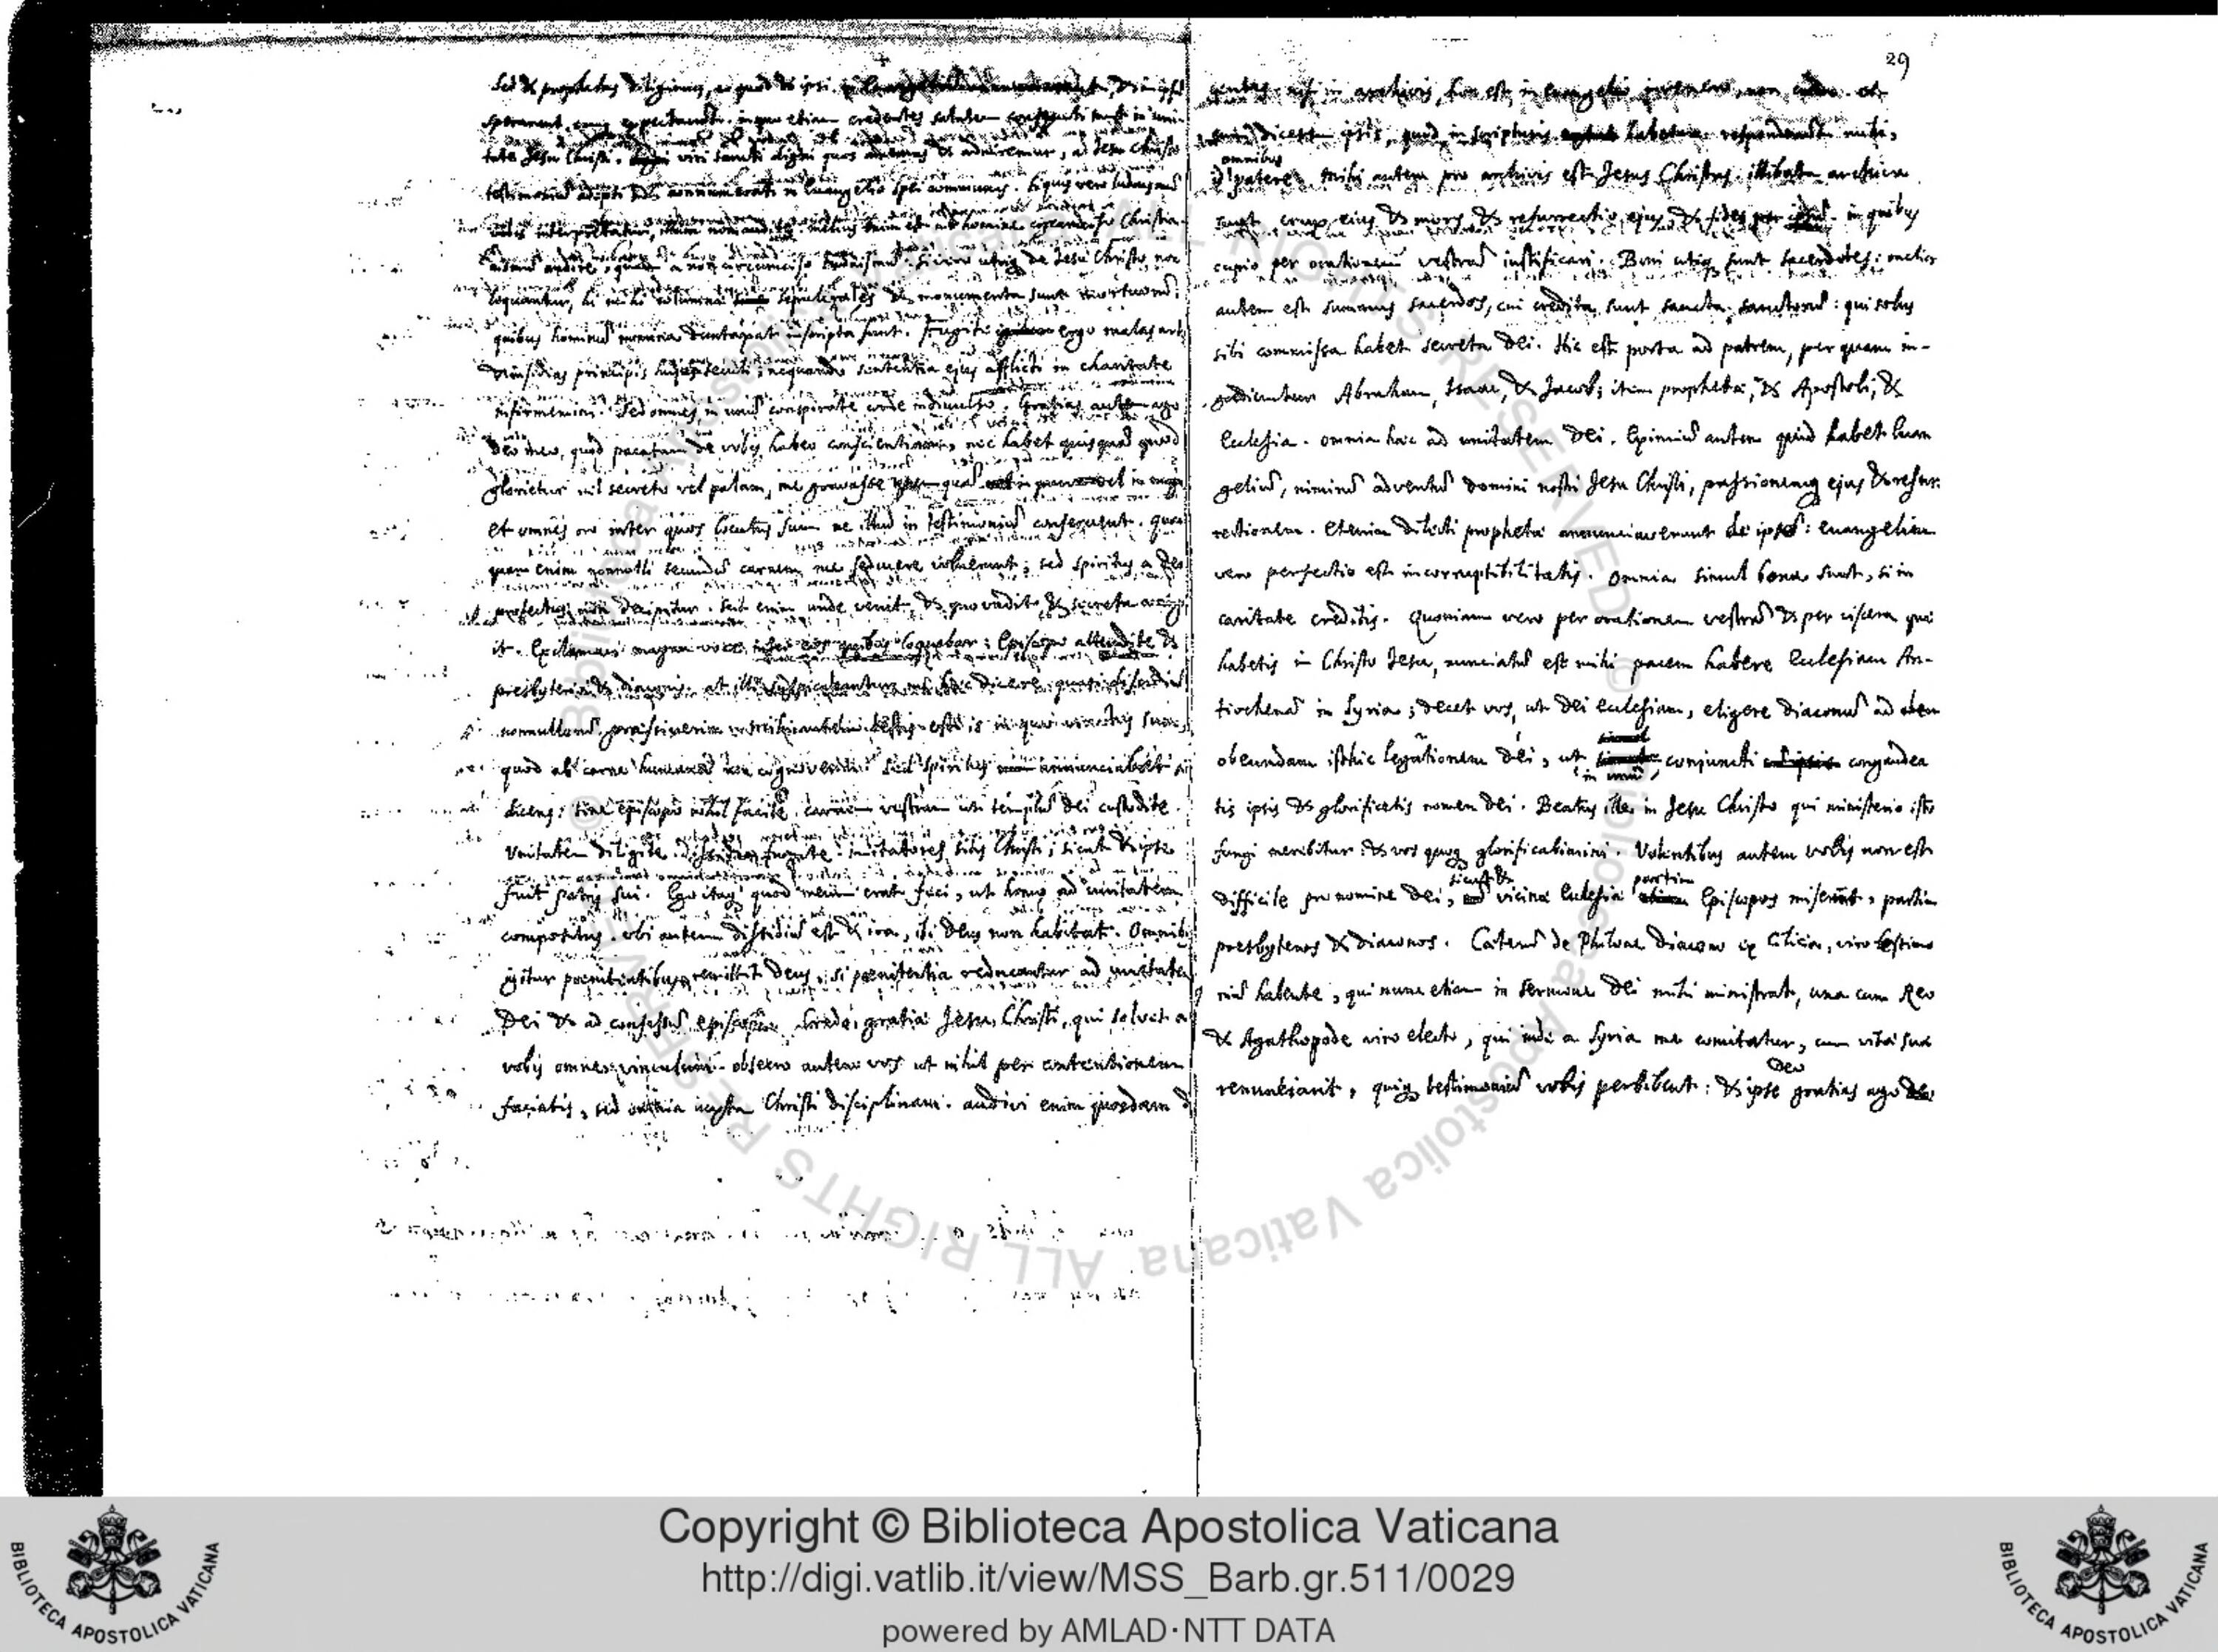 sed & prophetas diligimus, eo quod & ipsi
sperarunt eumq expectarunt. in quem etiam credentes salutem consequuti sunt in uni-
tate Jesu Christi. viri sancti digni quos amemus & admiremur, a Jesu Christo
testimonium adepti & connumerati in Evangelio spei communis. Si quis vero Judaismum
vobis interpretatur, illum non audite. melius enim est ab homine circumciso Christia-
nismum audire, quam a non circumciso Judaismum. si vero uterq de Jesu Christo non
loquantur, hi mihi sepulcrales & monumenta sunt mortuorum:
quibus hominum nomina duntaxat inscripta sunt. fugite ergo malas artes
& insidias principis hujus seculi; nequando sententia ejus afflicti in charitate
infirmemini. sed omnes in unum conspirate corde indiviso. Gratias autem ago
Deo meo, quod pacatam de vobis habeo conscientiam, nec habet quisquam quod
glorietur vel secreto vel palam, me gravasse quem
et omnes oro inter quos locutus sum ne illud in testimonium conservent. quan
quam enim nonnulli secundum carnem me seducere voluerunt; sed spiritus a Deo
profectus non decipitur. scit enim unde venit, & quo vadit, & secreta
it. Exclamavi magna voce inter eos quibus loquebar: Episcopo attendite &
presbyterio & diaconis. at illi suspicabantur me hæc dicere, quasi dissidium
nonnullorum præsciverim mihi autem testis est is in quo vinctus sum,
quod ab carne humana non cognoverim. sed spiritus annunciabat
dicens: sine episcopo nihil facite. carnem vestram uti templum Dei custodite.
Unitatem diligite. dissidia fugite. imitatores sitis Christi, sicut & ipse
fuit patris sui. Ego itaq quod meum erat feci, ut homo ad unitatem
compositus. ubi autem dissidium est & ira, ibi Deus non habitat. Omnibus
igitur poenitentibus remittit Deus, si poenitentia reducantur ad unitatem
Dei & ad consessum episcopi. Credo gratia Jesu Christi, qui solvet a
vobis omne vinculum. obsecro autem vos ut nihil per contentionem
faciatis, sed omnia juxta Christi disciplinam. audivi enim quosdam
29
centes: nisi in archivis, hoc est, in evangelio invenero, non credo. at
dicerem ipsis, quod in scripturis habetur. responderunt mihi,
omnibus
patere. Mihi autem pro archivis est Jesus Christus. illibata archiva
sunt crux ejus & mors & resurrectio ejus, & fides per ipsum. in quibus
cupio per orationem vestram justificari. Boni utiq sunt sacerdotes: melior
autem est summus sacerdos, cui credita sunt sancta sanctorum: qui solus
sibi commissa habet secreta Dei. Hic est porta ad patrem, per quam in-
grediuntur Abraham, Isaac, & Jacob; item prophetæ, & Apostoli, &
Ecclesia. omnia hæc ad unitatem Dei. Eximium autem quid habet Evan
gelium, nimirum adventum domini nostri Jesu Christi, passionemq ejus & resur-
rectionem. etenim dilecti prophetæ annunciaverunt de ipso: evangelium
vero perfectio est incorruptibilitatis. omnia simul bona sunt, si in
caritate creditis. Quoniam vero per orationem vestram & per viscera quæ
habetis in Christo Jesu, nunciatum est mihi pacem habere Ecclesiam An-
tiochenam in Syria; decet vos, ut Dei ecclesiam, eligere diaconum ad
obeundam isthic legationem dei, ut in unum conjuncti congaudea
tis ipsis & glorificetis nomen Dei. Beatus ille in Jesu Christo qui ministerio isto
fungi meribitur. & vos quoq glorificabimini. Volentibus autem vobis non est
sicut & partim
difficile pro nomine Dei, vicinæ Ecclesiæ Episcopos miserunt, partim
presbyteros & diaconos. Cæterum de Philone diacono ex Cilicia, viro testimo
nium habente, qui nunc etiam in sermone Dei mihi ministrat, una cum Reo
& Agathopode viro electo, qui inde a Syria me comitatur, cum vitæ suæ
Deo
renunciarit, quiq testimonium vobis perhibent: & ipse gratias ago
Copyright © Biblioteca Apostolica Vaticana
http://digi.vatlib.it/view/MSS_Barb.gr.511/0029
powered by AMLAD·NTT DATA
BIBLIOTECA APOSTOLICA VATICANA
BIBLIOTECA APOSTOLICA VATICANA